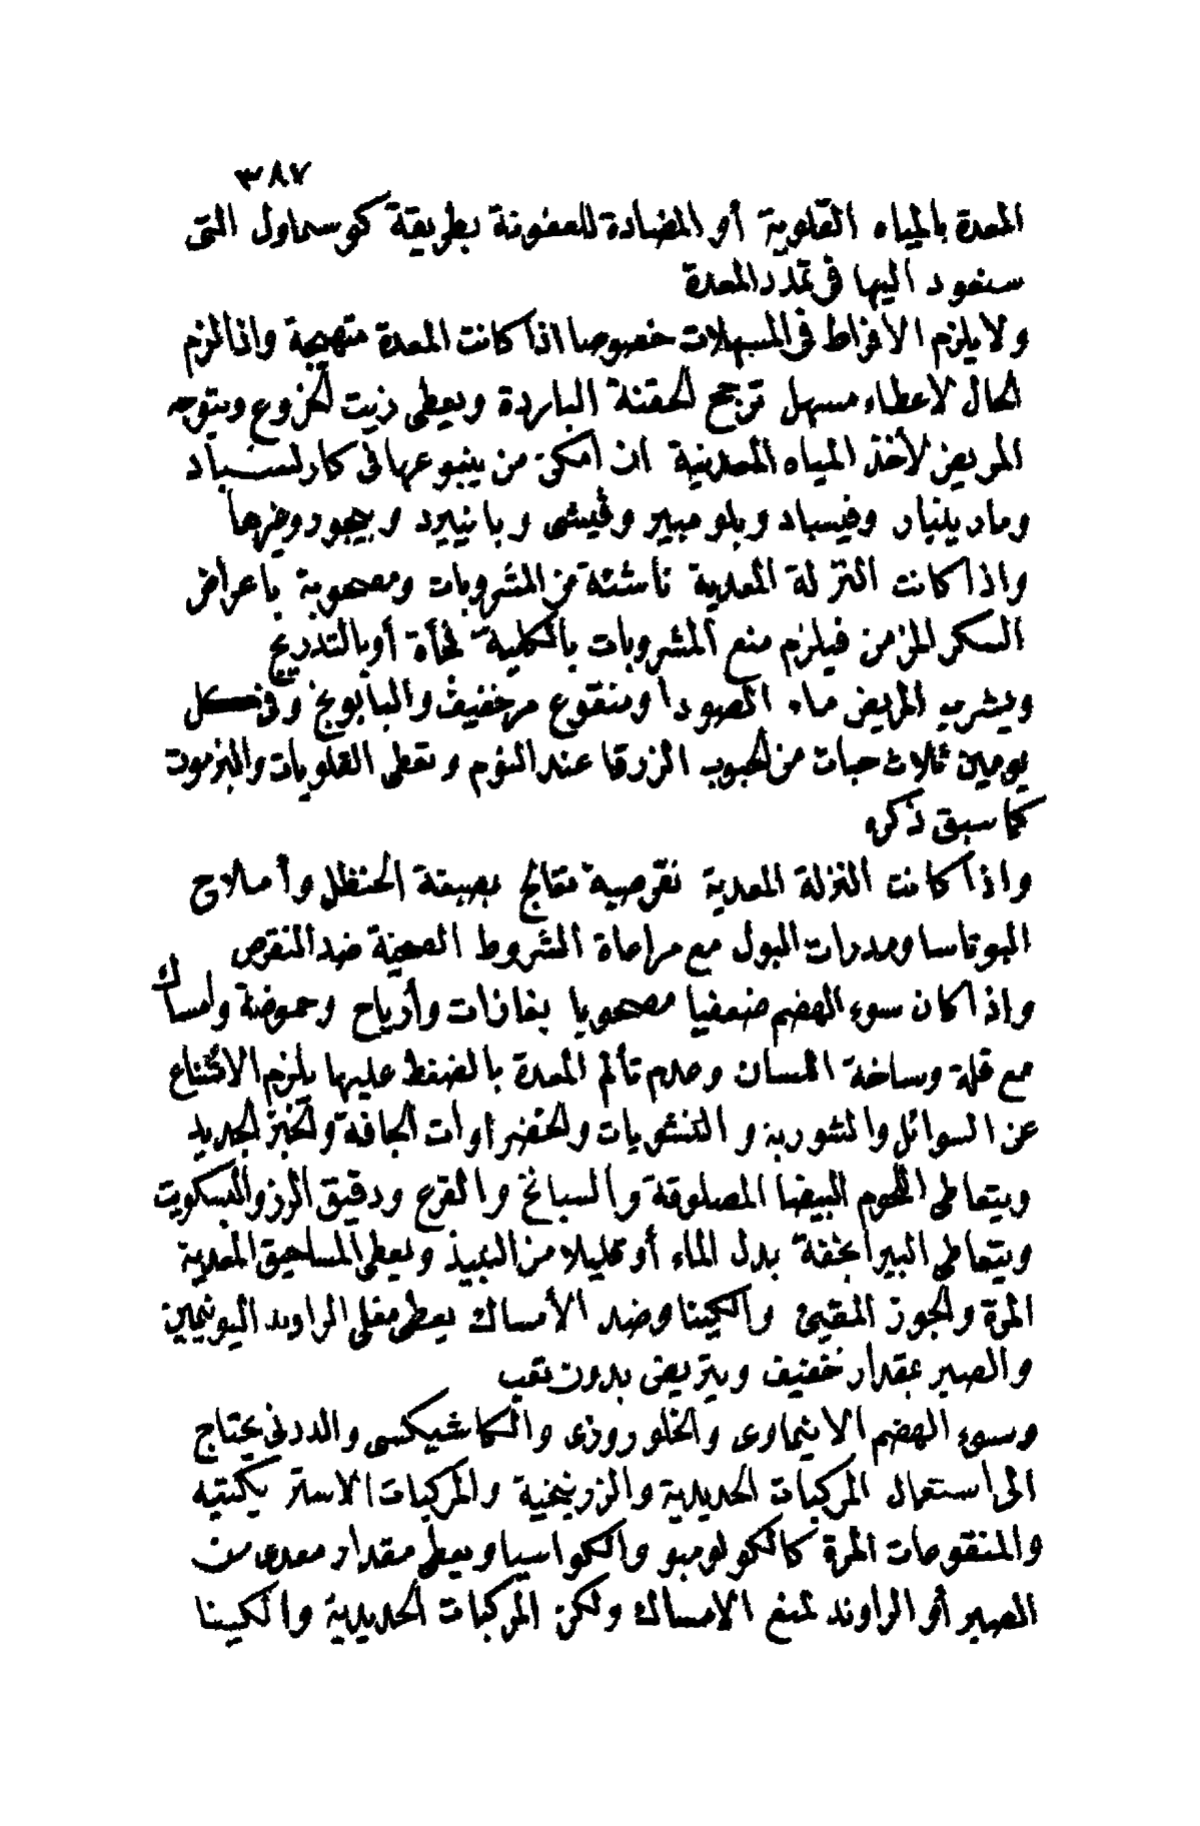 ٣٨٧
المعدة بالمياه القلوية أو المضادة للعفونة بطريقة كوسماول التى
سنعود اليها فى تمدد المعدة
ولا يلزم الافراط فى المسهلات خصوصا اذا كانت المعدة متهيجة واذا لزم
الحال لاعطاء مسهل ترجح الحقنة الباردة ويعطى زيت الخروع ويتوجه
المريض لأخذ المياه المعدنية ان امكن من ينبوعها فى كارلسباد
ومارينباد وفيسباد وبلومبيير وفيشى وبانييرد وبيجور وغيرها
واذا كانت النزلة المعدية ناشئة من المشروبات ومصحوبة باعراض
السكر المزمن فيلزم منع المشروبات بالكلية فجأة أو بالتدريج
ويشرب المريض ماء الصودا ومنقوع مرخفيف والبابونج وفى كل
يومين ثلاث حبات من الحبوب الزرقا عند النوم وتعطى القلويات والبزموت
كما سبق ذكره
واذا كانت النزلة المعدية نقرصية تعالج بصبغة الحنظل وأملاح
البوتاسا ومدرات البول مع مراعاة الشروط الصحية ضد النقرص
واذا كان سوء الهضم ضعفيا مصحوبا بغازات وأرياح وحموضة وامساك
مع قلة وساخة اللسان وعدم تألم المعدة بالضغط عليها يلزم الامتناع
عن السوائل والشوربة والنشويات والخضراوات الجافة والخبز الجديد
ويتعاطى اللحوم البيضا المصلوقة والسبانخ والقرع ودقيق الرز والبسكويت
ويتعاطى البيرا بخفة بدل الماء أو قليلا من النبيذ ويعطى المساحيق المعدية
المرة والجوز المقيئ والكينا وضد الأمساك يعطى مغلى الراوند اليونيمين
والصبر بمقدار خفيف ويتريض بدون تعب
وسوء الهضم الانيماوى والخلوروزى والكاشيكسى والددرنى يحتاج
الى استعمال المركبات الحديدية والزرنيخية والمركبات الاستر يكنتيه
والمنقوعات المرة كالكولومبو والكواسيا ويعطى مقدار معدى من
الصبر أو الراوند لمنع الامساك ولكن المركبات الحديدية والكينا